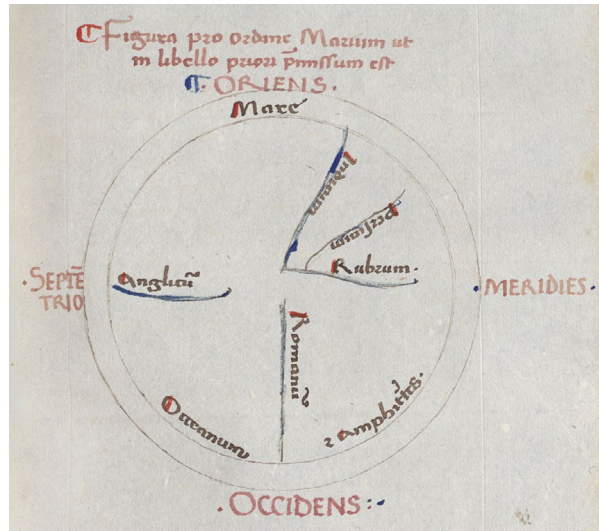 Figura pro ordine Marium ut
in libello priori p̄missum est
ORIENS.
Mare
Indicum
persicum
Rubrum.
Anglicū
.SEPTĒ
TRIO
.MERIDIES.
Romanū
Occeanum
⁊ Amphitrites.
.OCCIDENS:.